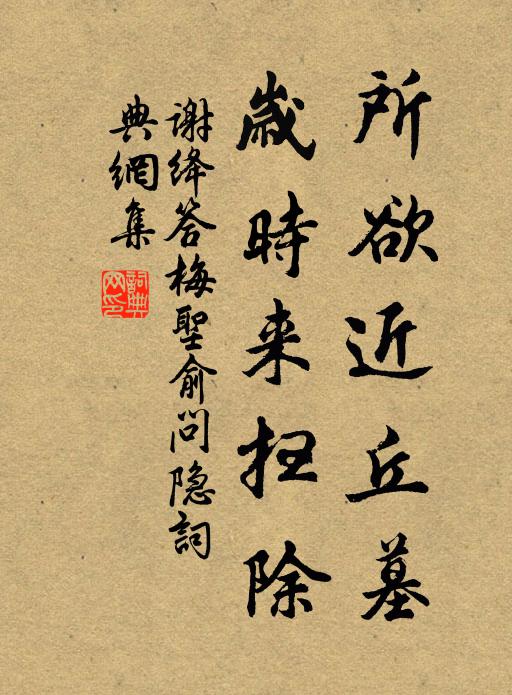 所欲近丘墓
歲時来扫除
谢绛答梅聖俞問隐詞
典網集
詞典
网印